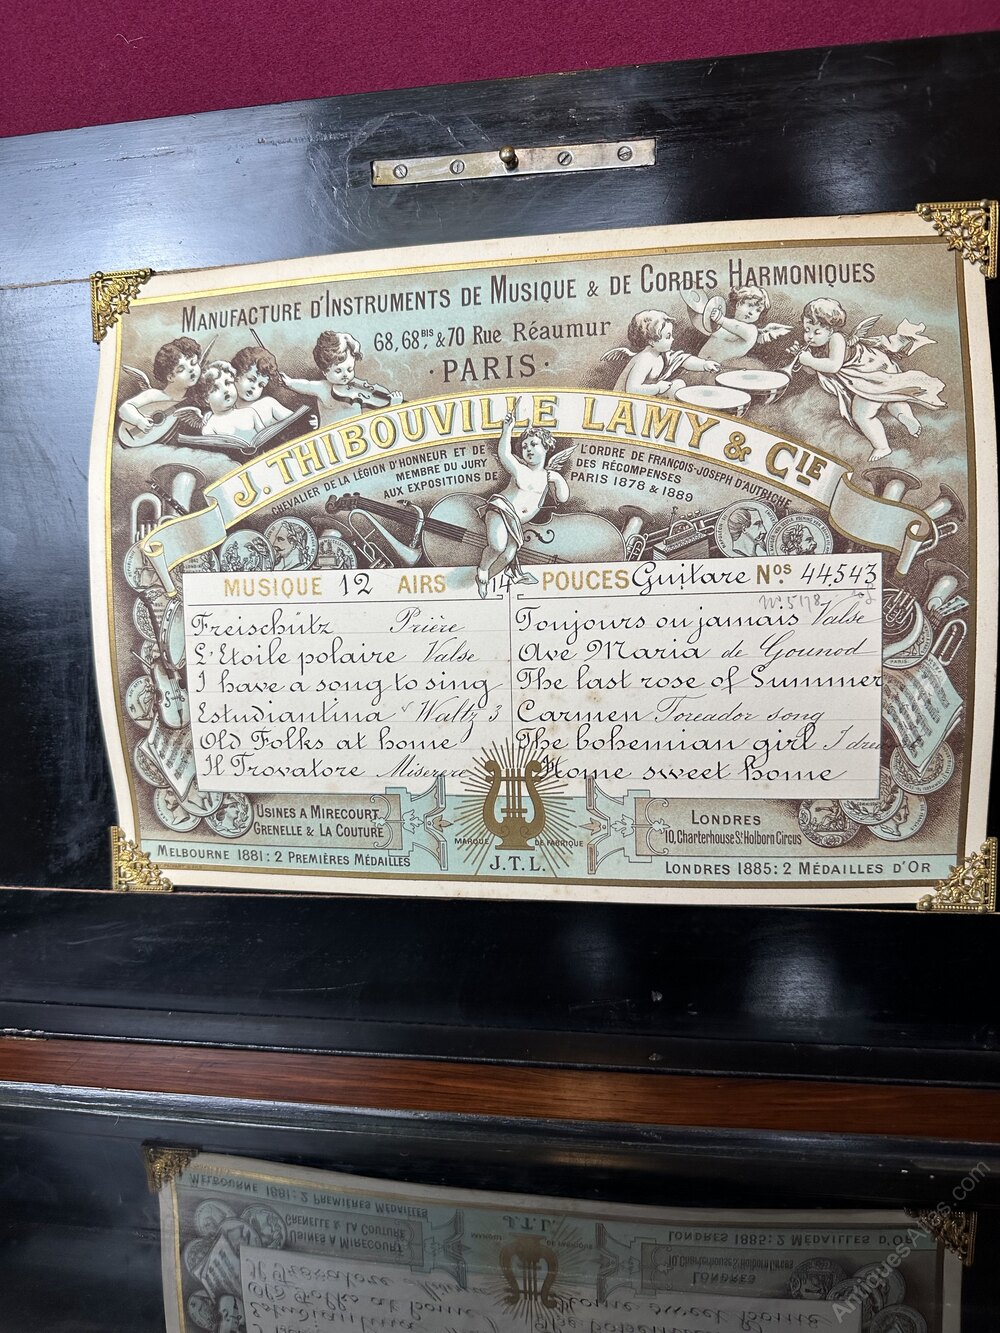 MANUFACTURE D'INSTRUMENTS DE MUSIQUE & DE CORDES HARMONIQUES
68, 68BIS & 70 Rue Réaumur
· PARIS ·
J. THIBOUVILLE LAMY & CIE
CHEVALIER DE LA LÉGION D'HONNEUR ET DE L'ORDRE DE FRANÇOIS-JOSEPH D'AUTRICHE
MEMBRE DU JURY DES RÉCOMPENSES
AUX EXPOSITIONS DE PARIS 1878 & 1889
MUSIQUE 12 AIRS 14 POUCES Guitare Nos 44543
No 5178
Freischütz Prière
L'Etoile polaire Valse
I have a song to sing
Estudiantina Waltz 3
Old Folks at home
Il Trovatore Miserere
Toujours ou jamais Valse
Ave Maria de Gounod
The last rose of Summer
Carmen Toreador song
The bohemian girl I
Home sweet home
USINES A MIRECOURT
GRENELLE & LA COUTURE
MARQUE DE FABRIQUE
J.T.L.
LONDRES
10, Charterhouse St Holborn Circus
MELBOURNE 1881: 2 PREMIÈRES MÉDAILLES
LONDRES 1885: 2 MÉDAILLES D'OR
AntiquesAtlas.com